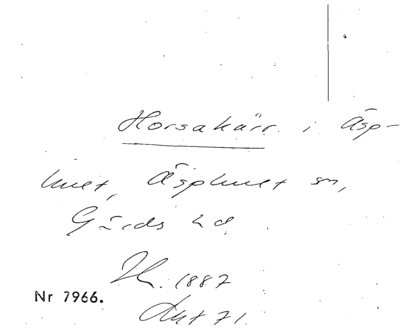 Horsakärr i Äsp-
huet, Äsphuet sn,
Gärds hd.
1887
Nr 7966.
71.